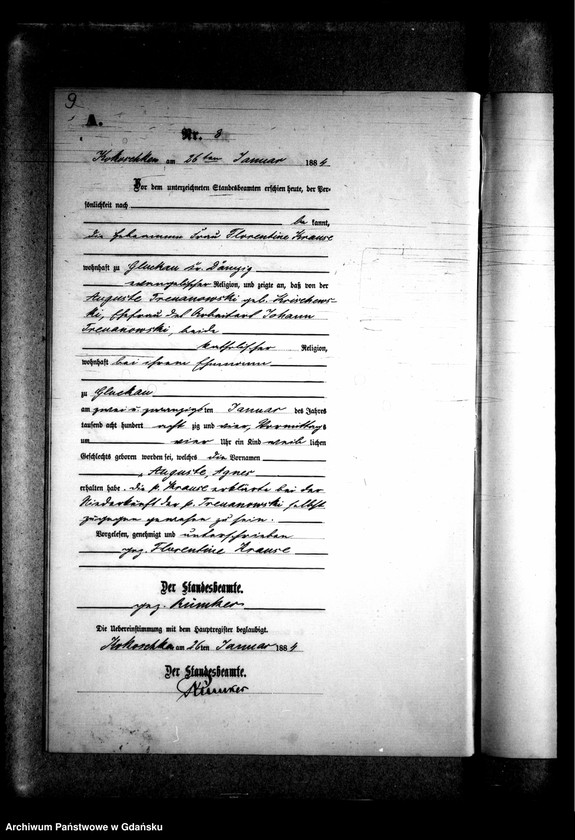 9
A.
Nr. 8
Kokoschken am 26ten Januar 1884
Vor dem unterzeichneten Standesbeamten erschien heute, der Per-
sönlichkeit nach
be kannt,
die Hebamme Frau Florentine Krause
wohnhaft zu Gluckau Kr. Danzig
evangelischer Religion, und zeigte an, daß von der
Auguste Treuanowski geb. Krischews-
ki, Ehefrau des Arbeiters Johann
Treuanowski, beide
katholischer Religion,
wohnhaft bei ihrem Ehemann
zu Gluckau
am zwei u. zwanzigsten Januar des Jahres
tausend acht hundert acht zig und vier, Vormittags
um vier Uhr ein Kind weib lichen
Geschlechts geboren worden sei, welches die Vornamen
Auguste, Agnes
erhalten habe. die p. Krause erklärte bei der
Niederkunft der p. Treuanowski selbst
zugegen gewesen zu sein.
Vorgelesen, genehmigt und unterschrieben
gez. Florentine Krause
Der Standesbeamte.
gez. Rümker
Die Uebereinstimmung mit dem Hauptregister beglaubigt.
Kokoschken am 26ten Januar 1884
Der Standesbeamte.
Rümker
Archiwum Państwowe w Gdańsku